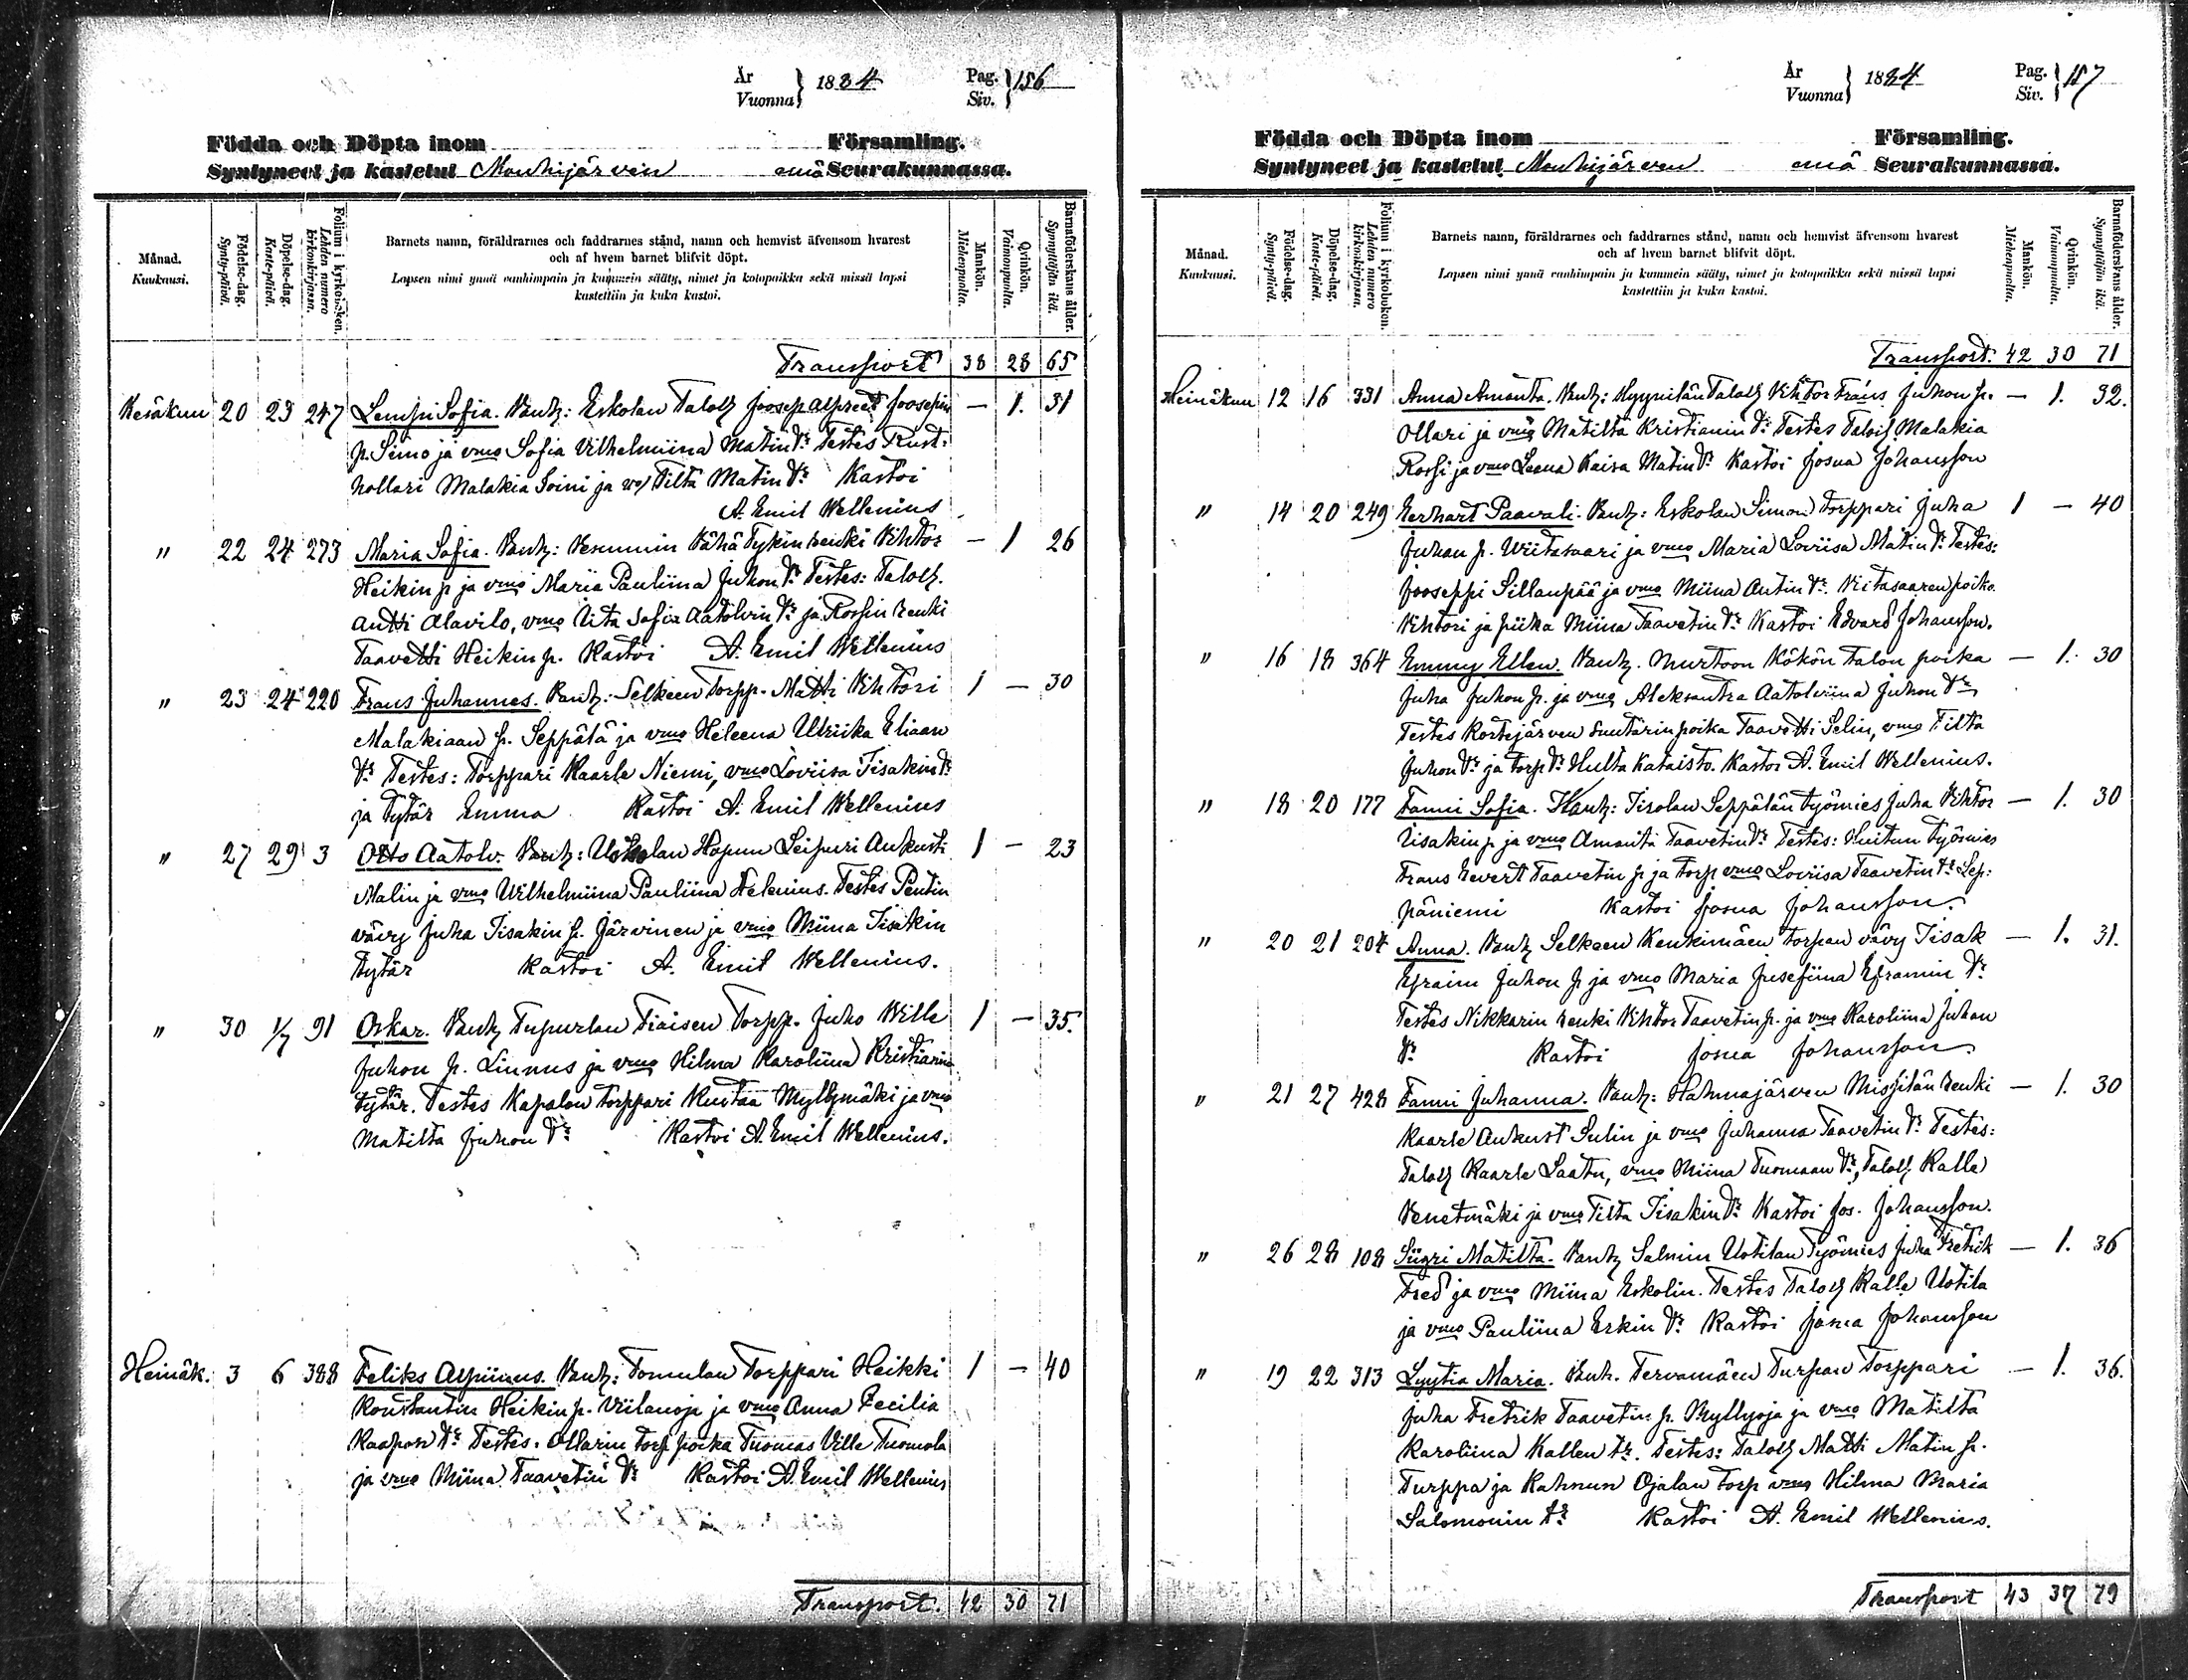 År
Vuonna } 1884
Pag.
Siv. } 156
Födda och Döpta inom Församling.
Syntyneet ja kastetut Mouhijärven emä Seurakunnassa.
Månad.
Kuukausi.
Födelse-dag.
Synty-päivä.
Döpelse-dag.
Kaste-päivä.
Folium i kyrkoboken.
Lehden numero kirkonkirjassa.
Barnets namn, föräldrarnes och faddrarnes stånd, namn och hemvist äfvensom hvarest
och af hvem barnet blifvit döpt.
Lapsen nimi ynnä vanhimpain ja kummein sääty, nimet ja kotopaikka sekä missä lapsi
kastettiin ja kuka kastoi.
Mankön.
Miehenpuolta.
Qvinkön.
Vaimonpuolta.
Barnaföderskans ålder.
Synnyttäjän ikä.
Transport 38 28 65
Kesäkuu 20 23 247 Lempi Sofia. Vanh: Eskolan Taloll Joosep Alpreet Joosepin — 1. 31
p. Simo ja vmo Sofia Vilhelmiina Matin tr Testes Rust.
hollari Malakia Soini ja vo Tilta Matin tr Kastoi
A. Emil Wellenius
" 22 24 273 Maria Sofia. Vanh: Vesunnin Vähä Tykin renki Vihtor — 1 26
Heikin p ja vmo Maria Pauliina Juhon tr Testes: Taloll.
Antti Alavilo, vmo Iita Sofia Aatolvin tr ja Rossin renki
Taavetti Heikin p. Kastoi A. Emil Wellenius
" 23 24 220 Frans Juhannes. Vanh: Selkeen Torpp. Matti Vihtori 1 — 30
Malakiaan p. Seppälä ja vmo Heleena Ulriika Eliaan
tr Testes: Torppari Kaarle Niemi, vmo Loviisa Iisakin tr
ja tytär Emma Kastoi A. Emil Wellenius
" 27 29 3 Otto Aatolv. Vanh: Hopun Leipuri Aukusti 1 — 23
Malin ja vmo Wilhelmiina Pauliina Helenius. Testes Pentin
vävy Juha Iisakin p. Järvinen ja vmo Miina Iisakin
tytär Kastoi A. Emil Wellenius.
" 30 1/7 91 Oskar. Vanh Tupurlan Tiaisen Torpp. Juho Wille 1 — 35.
Juhon p. Linnus ja vmo Hilma Karoliina Kristianin
tytär. Testes Kapalon torppari Kustaa Myllymäki ja vmo
Matilta Juhon tr Kastoi A. Emil Wellenius.
Heinäk. 3 6 388 Feliks Alpiinus. Vanh: Tomulan Torppari Heikki 1 — 40
Konstantin Heikin p. Viilanoja ja vmo Anna Cecilia
Kaapon tr Testes. Ollarin torp poika Tuomas Ville Tuomola
ja vmo Miina Taavetin tr Kastoi A. Emil Wellenius
Transport. 42 30 71
År
Vuonna } 1884
Pag.
Siv. } 157
Födda och Döpta inom Församling.
Syntyneet ja kastetut Mouhijärven emä Seurakunnassa.
Månad.
Kuukausi.
Födelse-dag.
Synty-päivä.
Döpelse-dag.
Kaste-päivä.
Folium i kyrkoboken.
Lehden numero kirkonkirjassa.
Barnets namn, föräldrarnes och faddrarnes stånd, namn och hemvist äfvensom hvarest
och af hvem barnet blifvit döpt.
Lapsen nimi ynnä vanhimpain ja kummein sääty, nimet ja kotopaikka sekä missä lapsi
kastettiin ja kuka kastoi.
Mankön.
Miehenpuolta.
Qvinkön.
Vaimonpuolta.
Barnaföderskans ålder.
Synnyttäjän ikä.
Transport. 42 30 71
Heinäkuu 12 16 331 Anna Amanta. Vanh: Hyynilän Taloll Vihtor Frans Juhon p. — 1. 32.
Ollari ja vmo Matilta Kristianin tr Testes Taloll Malakia
Rossi ja vmo Leena Kaisa Matin tr Kastoi Josua Johansson
" 14 20 249 Eerhart Paavali. Vanh: Eskolan Simon Torppari Juha 1 — 40
Juhan p. Wiitasaari ja vmo Maria Loviisa Matin tr Testes:
Jooseppi Sillanpää ja vmo Miina Antin tr. Viitasaaren poika
Vihtori ja piika Miina Taavetin tr Kastoi Edvard Johansson.
" 16 18 364 Emmy Ellen. Vanh. Murtoon Kökön talon poika — 1. 30
Juha Juhon p. ja vmo Aleksantra Aatolviina Juhon tr
Testes Kortejärven suutarin poika Taavetti Selin, vmo Tilta
Juhon tr ja torp tr Hulta Kataisto. Kastoi A. Emil Wellenius.
" 18 20 177 Fanni Sofia. Vanh: Iisolan Seppälän työmies Juha Vihtor — 1. 30
Iisakin p ja vmo Amanta Taavetin tr Testes: Huitun työmies
Frans Evert Taavetin p ja torp vmo Loviisa Taavetin tr Lep:
päniemi Kastoi Josua Johansson.
" 20 21 204 Anna. Vanh Selkeen Kenkimäen torpan vävy Iisak — 1. 31.
Efraim Juhon p ja vmo Maria Jusefiina Eframin tr
Testes Nikkarin renki Vihtor Taavetin p. ja vmo Karoliina Juhan
tr Kastoi Josua Johansson.
" 21 27 428 Fanni Juhanna. Vanh: Hahmajärven Missilän renki — 1. 30
Kaarle Aukust Sulin ja vmo Juhanna Taavetin tr Testes:
Taloll Kaarle Laatu, vmo Miina Tuomaan tr, Taloll Kalle
Venetmäki ja vmo Tilta Iisakin tr Kastoi Jos. Johansson.
" 26 28 108 Siigri Matilta. Vanh Salmin Uotilan Työmies Juha Fretrik — 1. 36
Fred ja vmo Miina Eskolin. Testes Taloll Kalle Uotila
ja vmo Pauliina Erkin tr Kastoi Josua Johansson
" 19 22 313 Lyytia Maria. Vanh. Tervamäen Turpan Torppari — 1. 36.
Juha Fretrik Taavetin p. Myllyoja ja vmo Matilta
Karoliina Kallen tr. Testes: Taloll Matti Matin p.
Turppa ja Kahnun Ojalan torp vmo Hilma Maria
Salomonin tr Kastoi A. Emil Wellenius.
Transport 43 37 79